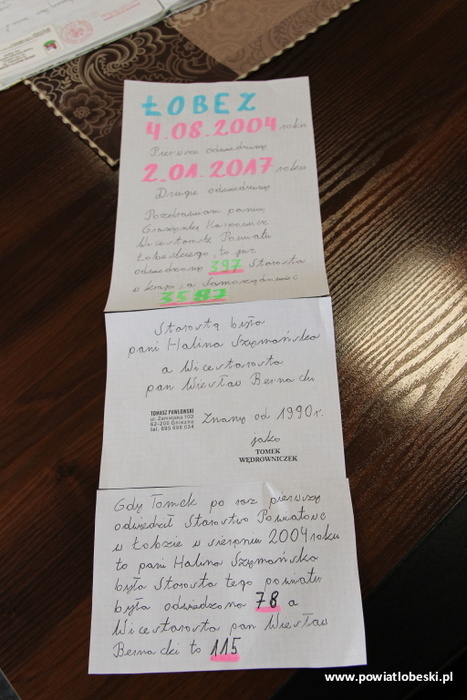 ŁOBEZ
4.08.2004 roku
Pierwsze odwiedziny
2.01.2017 roku
Drugie odwiedziny
Pozdrawiam panią
Grażynkę Karpowicz
Wicestarostę Powiatu
Łobeskiego, to już
odwiedzony 397 Starosta
w kraju, a Samorządowiec
3582
Starostą była
pani Halina Szymańska
a Wicestarosta
pan Wiesław Bernacki
TOMASZ PAWŁOWSKI
ul. Zamiejska 10D
62-200 Gniezno
tel. 695 698 034
Znany od 1990 r.
jako
TOMEK
WĘDROWNICZEK
Gdy Tomek po raz pierwszy
odwiedził Starostwo Powiatowe
w Łobzie w sierpniu 2004 roku
to pani Halina Szymańska
była Starosta tego powiatu
była odwiedzona 78 a
Wicestarosta pan Wiesław
Bernacki to 115
www.powiatlobeski.pl